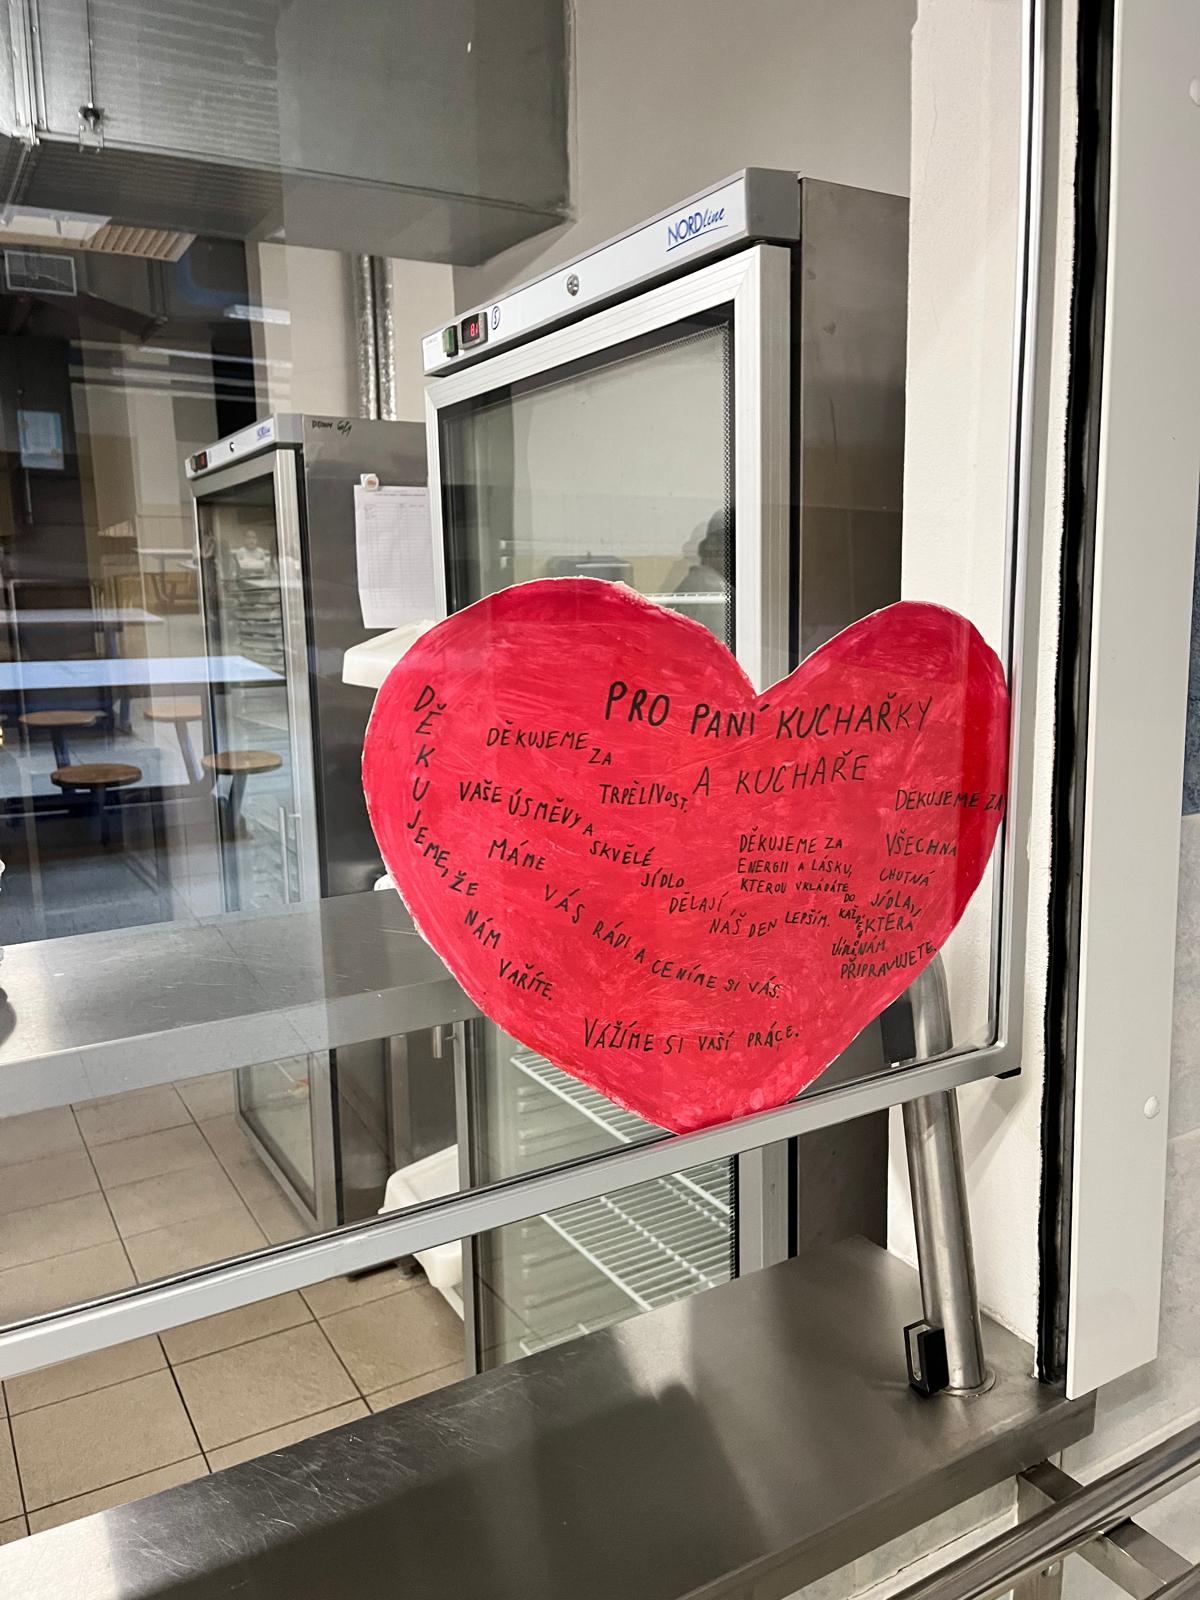 NORDline
PRO PANÍ KUCHAŘKY
A KUCHAŘE
DĚKUJEME, ŽE
NÁM
VAŘÍTE.
DĚKUJEME
ZA
TRPĚLIVOST.
VAŠE ÚSMĚVY A
SKVĚLÉ
JÍDLO
DĚLAJÍ
NÁŠ DEN LEPŠÍM.
MÁME
VÁS
RÁDI A CENÍME SI VÁS.
DĚKUJEME ZA
ENERGII A LÁSKU,
KTEROU VKLÁDÁTE
DO
DĚKUJEME ZA
VŠECHNA
CHUTNÁ
JÍDLA,
KTERÁ
NÁM
PŘIPRAVUJETE.
VÁŽÍME SI VAŠÍ PRÁCE.